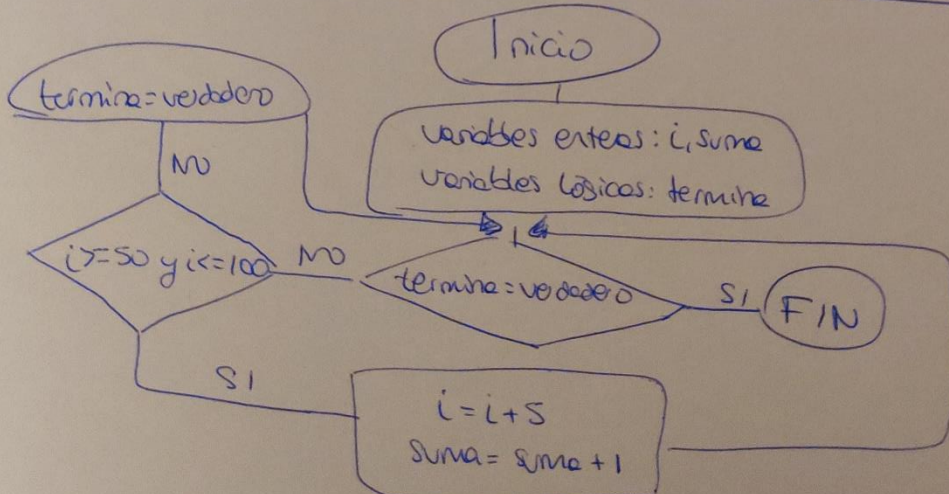 Inicio
termina=verdadero
variables enteras: i, suma
variables lógicas: termina
NO
i>=50 y i<=100
NO
termina=verdadero
SI
FIN
SI
i=i+5
suma= suma+1